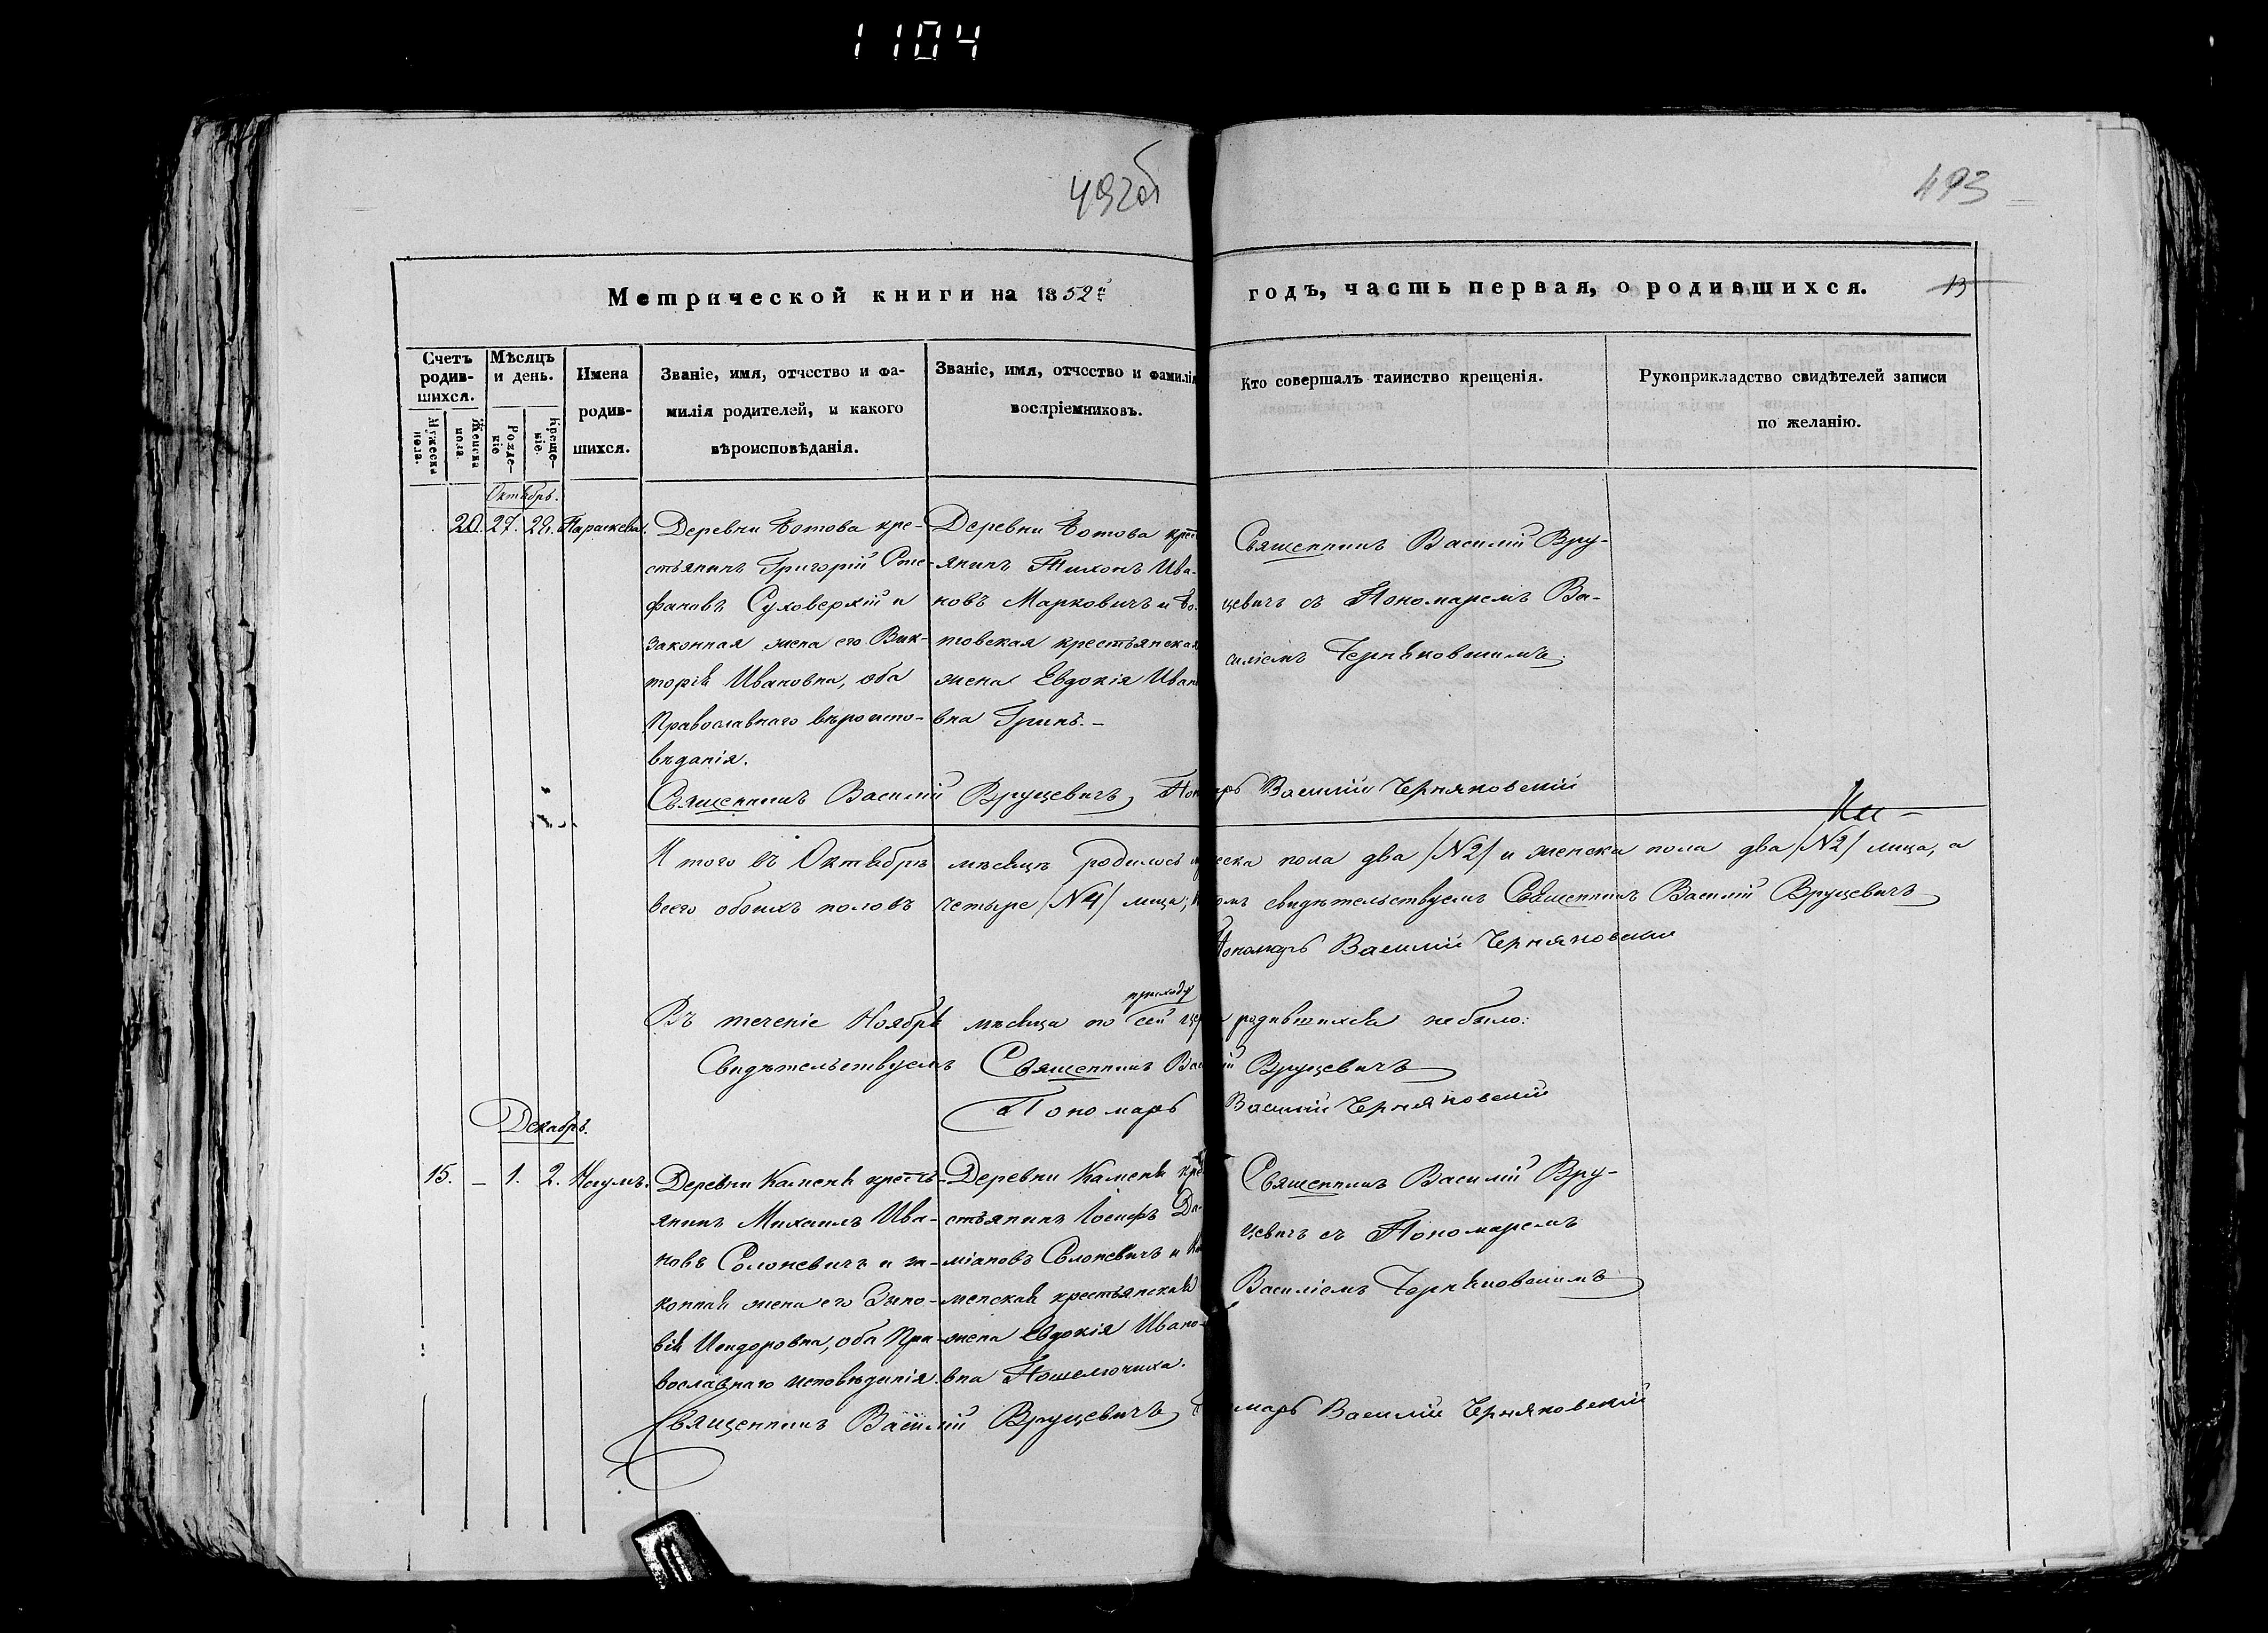 1104
492об
493
Метрической книги на 1852й годъ, часть первая, о родившихся.
13
Счетъ родив-шихся.
Мѣсяцъ и день.
Имена родив-шихся.
Званіе, имя, отчество и фа-
милія родителей, и какого
вѣроисповѣданія.
Званіе, имя, отчество и фамилія
воспріемниковъ.
Кто совершалъ таинство крещенія.
Рукоприкладство свидѣтелей записи
по желанію.
Мужеска пола.
Женска пола.
Рожде-ніе
Креще-ніе.
Октябрь.
20. 27. 29. Параскева.
Деревни Ботова кре-
стьянинъ Григорій Сте-
фановъ Суховерхій и
законная жена его Вик-
торія Ивановна, оба
Православнаго вѣроиспо-
вѣданія.
Деревни Ботова крест
янинъ Тихонъ Ива-
новъ Марковичъ и Бо-
товская крестьянская
жена Евдокія Ивано
вна Гринь.-
Священникъ Василій Вру-
цевичъ съ Пономаремъ Ва-
силіемъ Черняковскимъ.
Священникъ Василій Вруцевичъ, Пон арь Василій Черняковскій
И того въ Октябрѣ мѣсяцѣ родилось м еска пола два /№2/ и женска пола два /№2/ лица, а
всего обоихъ половъ четыре /№4/ лица; омъ свидѣтельствуемъ Священникъ Василій Вруцевичъ
Пономарь Василій Черняковскій
приходу
Въ теченіе Ноября мѣсяца по сей цер родившихся не было:
Свидѣтельствуемъ Священникъ Вас ій Вруцевичъ
Пономарь Василій Черняковскій
Декабрь.
15. - 1. 2. Наумъ.
Деревни Каменя кресть-
янинъ Михаилъ Ива-
новъ Солоневичъ и за-
конная жена его Зино-
вія Исидоровна, оба Пра-
вославнаго исповѣданія.
Деревни Каменя кре
стьянинъ Іосифъ Да-
міановъ Солоневичъ и Ка
менская крестьянская
жена Евдокія Ивано-
вна Пошелючиха.
Священникъ Василій Вру-
цевичъ съ Пономаремъ
Василіемъ Черняковскимъ
Священникъ Василій Вруцевичъ, П марь Василій Черняковскій